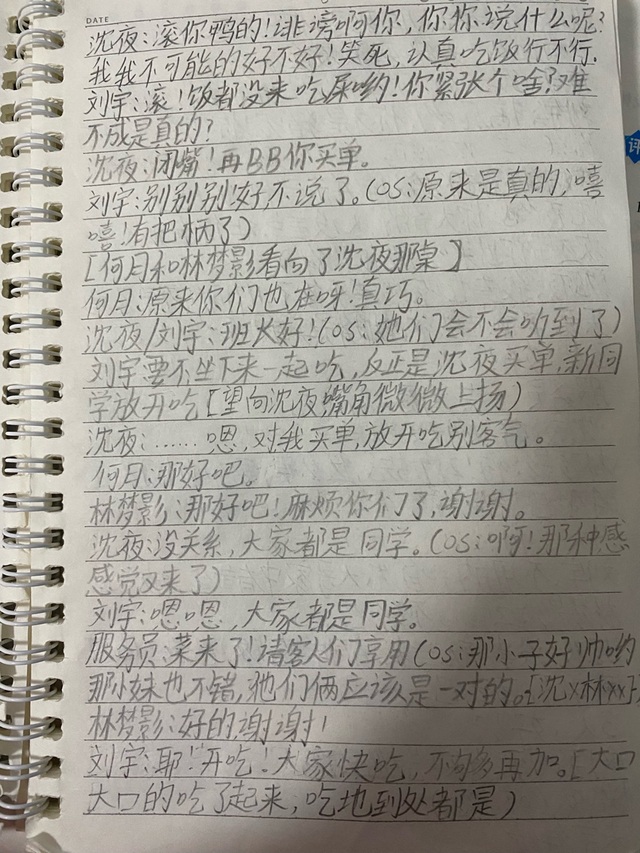 DATE
沈夜:滚你鸭的!诽谤啊你,你你说什么呢?
我我不可能的好不好!笑死,认真吃饭行不行.
刘宇:滚!饭都没来吃尿哟!你紧张个啥?难
不成是真的?
沈夜:闭嘴!再BB你买单。
刘宇:别别别!好,不说了。(OS:原来是真的,嘻
嘻!有把柄了)
[何月和林梦影看向了沈夜那桌]
何月:原来你们也在呀!真巧。
沈夜/刘宇:班长好!(OS:她们会不会听到了)
刘宇:要不坐下来一起吃,反正是沈夜买单,新同
学放开吃[望向沈夜,嘴角微微上扬)
沈夜:……嗯,对我买单,放开吃别客气。
何月:那好吧。
林梦影:那好吧!麻烦你们了,谢谢。
沈夜:没关系,大家都是同学。(OS:啊!那种感
感觉又来了)
刘宇:嗯嗯,大家都是同学。
服务员:菜来了!请客人们享用(OS:那小子好帅哟
那小妹也不错,他们俩应该是一对的。[沈x林xx])
林梦影:好的,谢谢!
刘宇:耶!开吃!大家快吃,不够再加。[大口
大口的吃了起来,吃地到处都是)
评